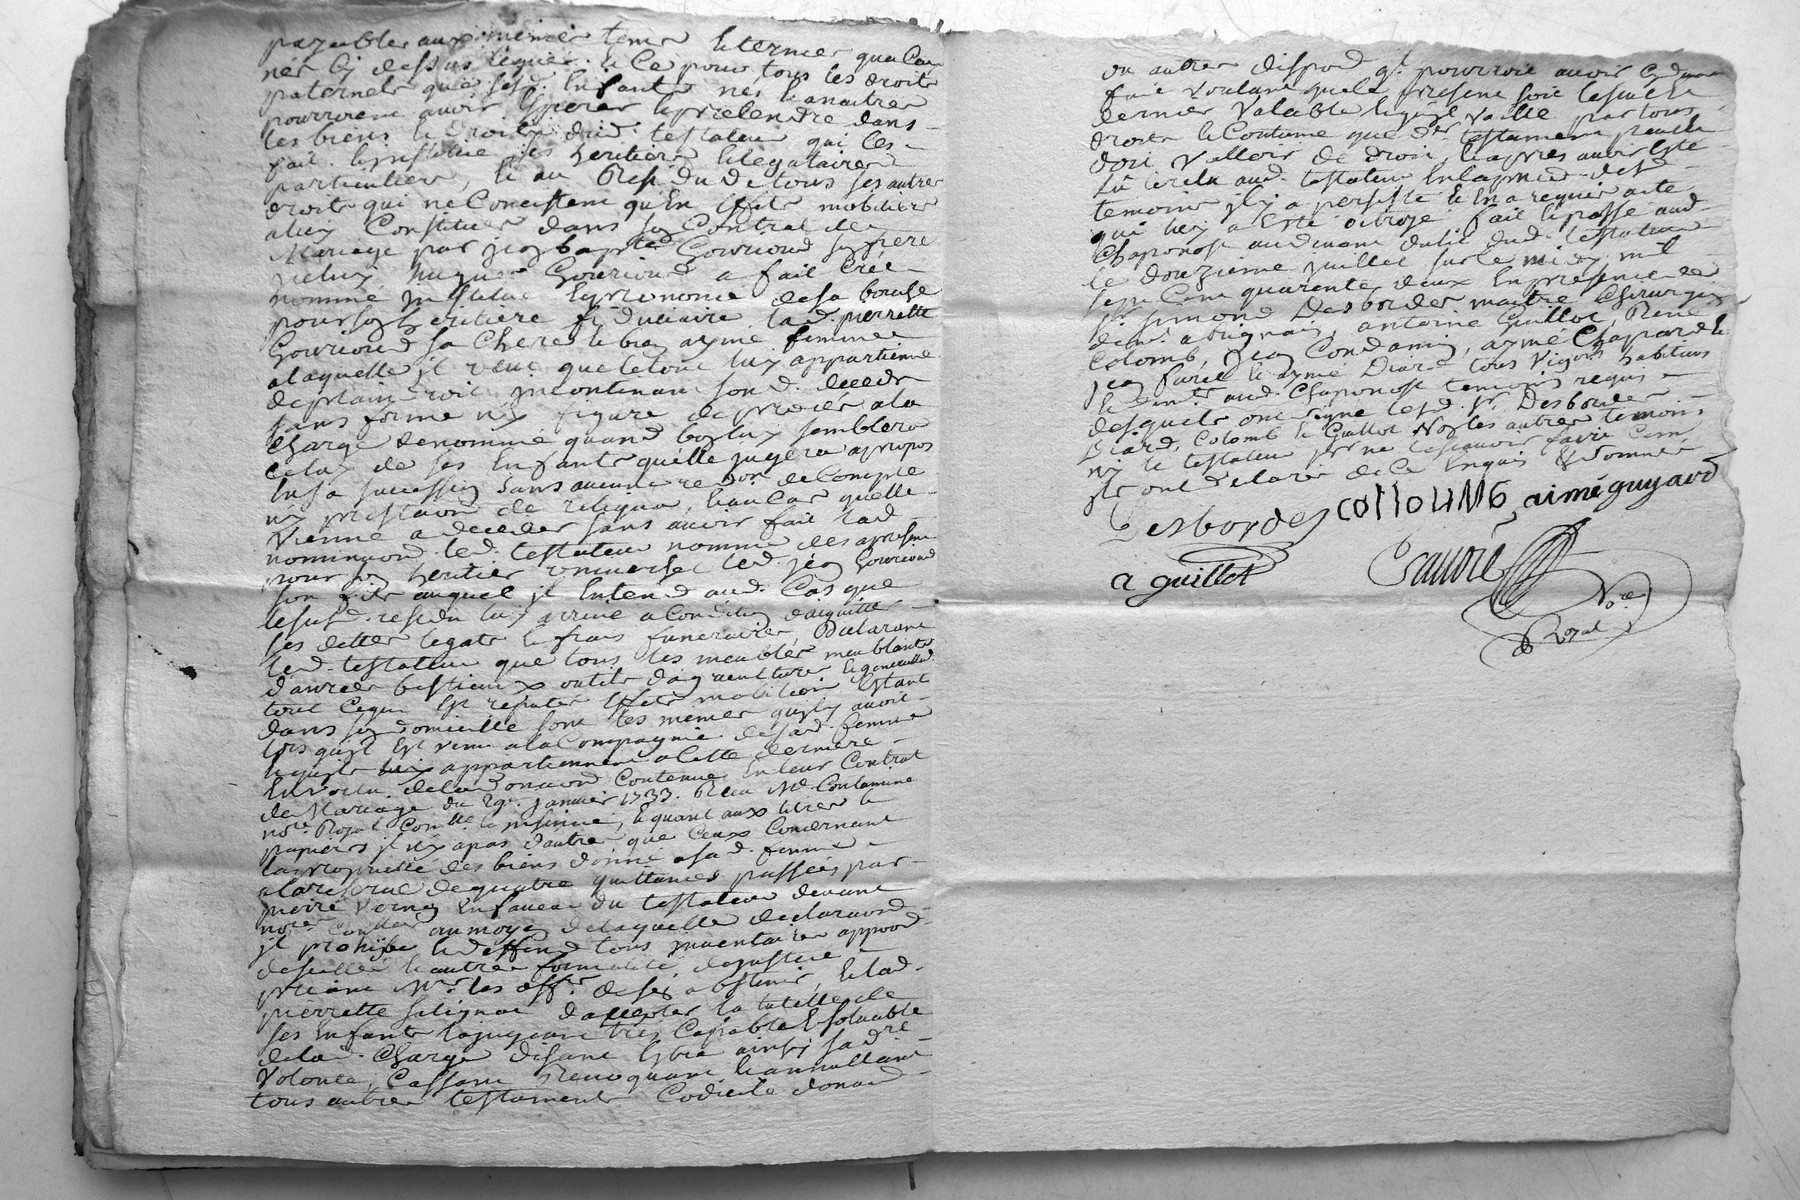 payables aux mêmes temps et termes que l'au
nés cy dessus légués et ce pour tous les droits
paternels que sesd. Enfants nés et a naitre
pourroient avoir Esperer et prétendre dans
les biens et Droits dud. testateur qui les
fait et institue ses heritiers et legataires
particuliers, et au Residu de tous ses autres
droits qui ne Concistent qu'En Effets mobiliers
a luy Constitués dans son Contrat de
Mariage par jean baptte Gouvioud son frere
jceluy hugues Gouvioud a fait Créé
nommé institué Et prononcé de sa bouche
pour son heritiere fiduciaire lad. pierrette
sa Chere et bien aymé femme
a laquelle jl veut que le tout luy appartienne
de plain droit jncontinent sond. decedz
sans forme ny figure de procés a la
charge de nommer quand bon luy semblera
celuy de ses Enfants qu'elle jugera a propos
En sa succession sans aucune redon de Compte
ny prestation de reliqua, et au Cas qu'elle
vienne a deceder sans avoir fait lad.
nomination led. testateur nomme des a present
pour son heritier universel led. jean Gouvioud
son fils auquel jl Entend aud. Cas que
lesusd. residu luy arrive a Condition daquitter
ses dettes legats et frais funeraires, Declarant
led. testateur que tous les meubles meublants
danrées bestieaux outils dagriculture et generallemt
tout ce qui Est reputé Effets mobiliers Estant
dans son domicille sont les memes quil y avoit
lors qu'jl Est venu a la Compagnie de sad. femme
et qu'ils appartiennent a Cette derniere
En vertu de la donaon Contenue En leur Contrat
de Mariage du 29e. janvier 1733. Receu Me. Contamine
nore Royal Com. et insinué, et quant aux titres et
papiers jl n'y a pas d'autres que Ceux Concernant
la propriété des biens donné a sad. femme
a la reserve de quatre quittances passées par
pierre Vernay En faveur du testateur devant
nore au moyen de laquelle declaraon
jl prohibe et deffend tous jnventaires appoon
de scellés et autres formalités de justice
priant Mrs. les offrs. de sen abstenir, et lad.
pierrette d'accepter la tutelle de
ses Enfants la jugeant tres Capable Et solvable
de lad. Charge disant Estre ainsy sa dre
Volonté, Cassant revoquant et annullant
tous autres testaments Codicile donaon
ou autres dispoon qe. pourroit avoir cy devant
fait voulant que le present soit le seul et
dernier Valable Et qu'jl vaille par tous
droits et Coutume que der testament peut et
doit valloir de droit, et apres avoir Esté
Lû et relu aud. testateur En la presence desd.
temoins jl y a persisté Et En a requis acte
qui luy a Esté octroyé fait et passé aud.
Chaponost au devant du lit dud. testateur
le douzieme juillet sur le midy mil
sept Cent quarente deux En presence de
sr. simond Desbordes maitre Chirurgien
demt. a brignais, antoine Guillot, René
Colomb, jean Condamin, aymé Chapard et
jean favre et aymé Diard tous vigons habitans
et demts aud. Chaponost temoins requis
desquels ont signé lesd. sr. Desbordes
Diard, Colomb et Guillot Non les autres temoins
ny le testateur pr ne le scavoir faire Comme
jls ont declaré de Ce Enquis Et sommés
Desbordes collouMG aimé guyard
a guillot
Nore
Royal